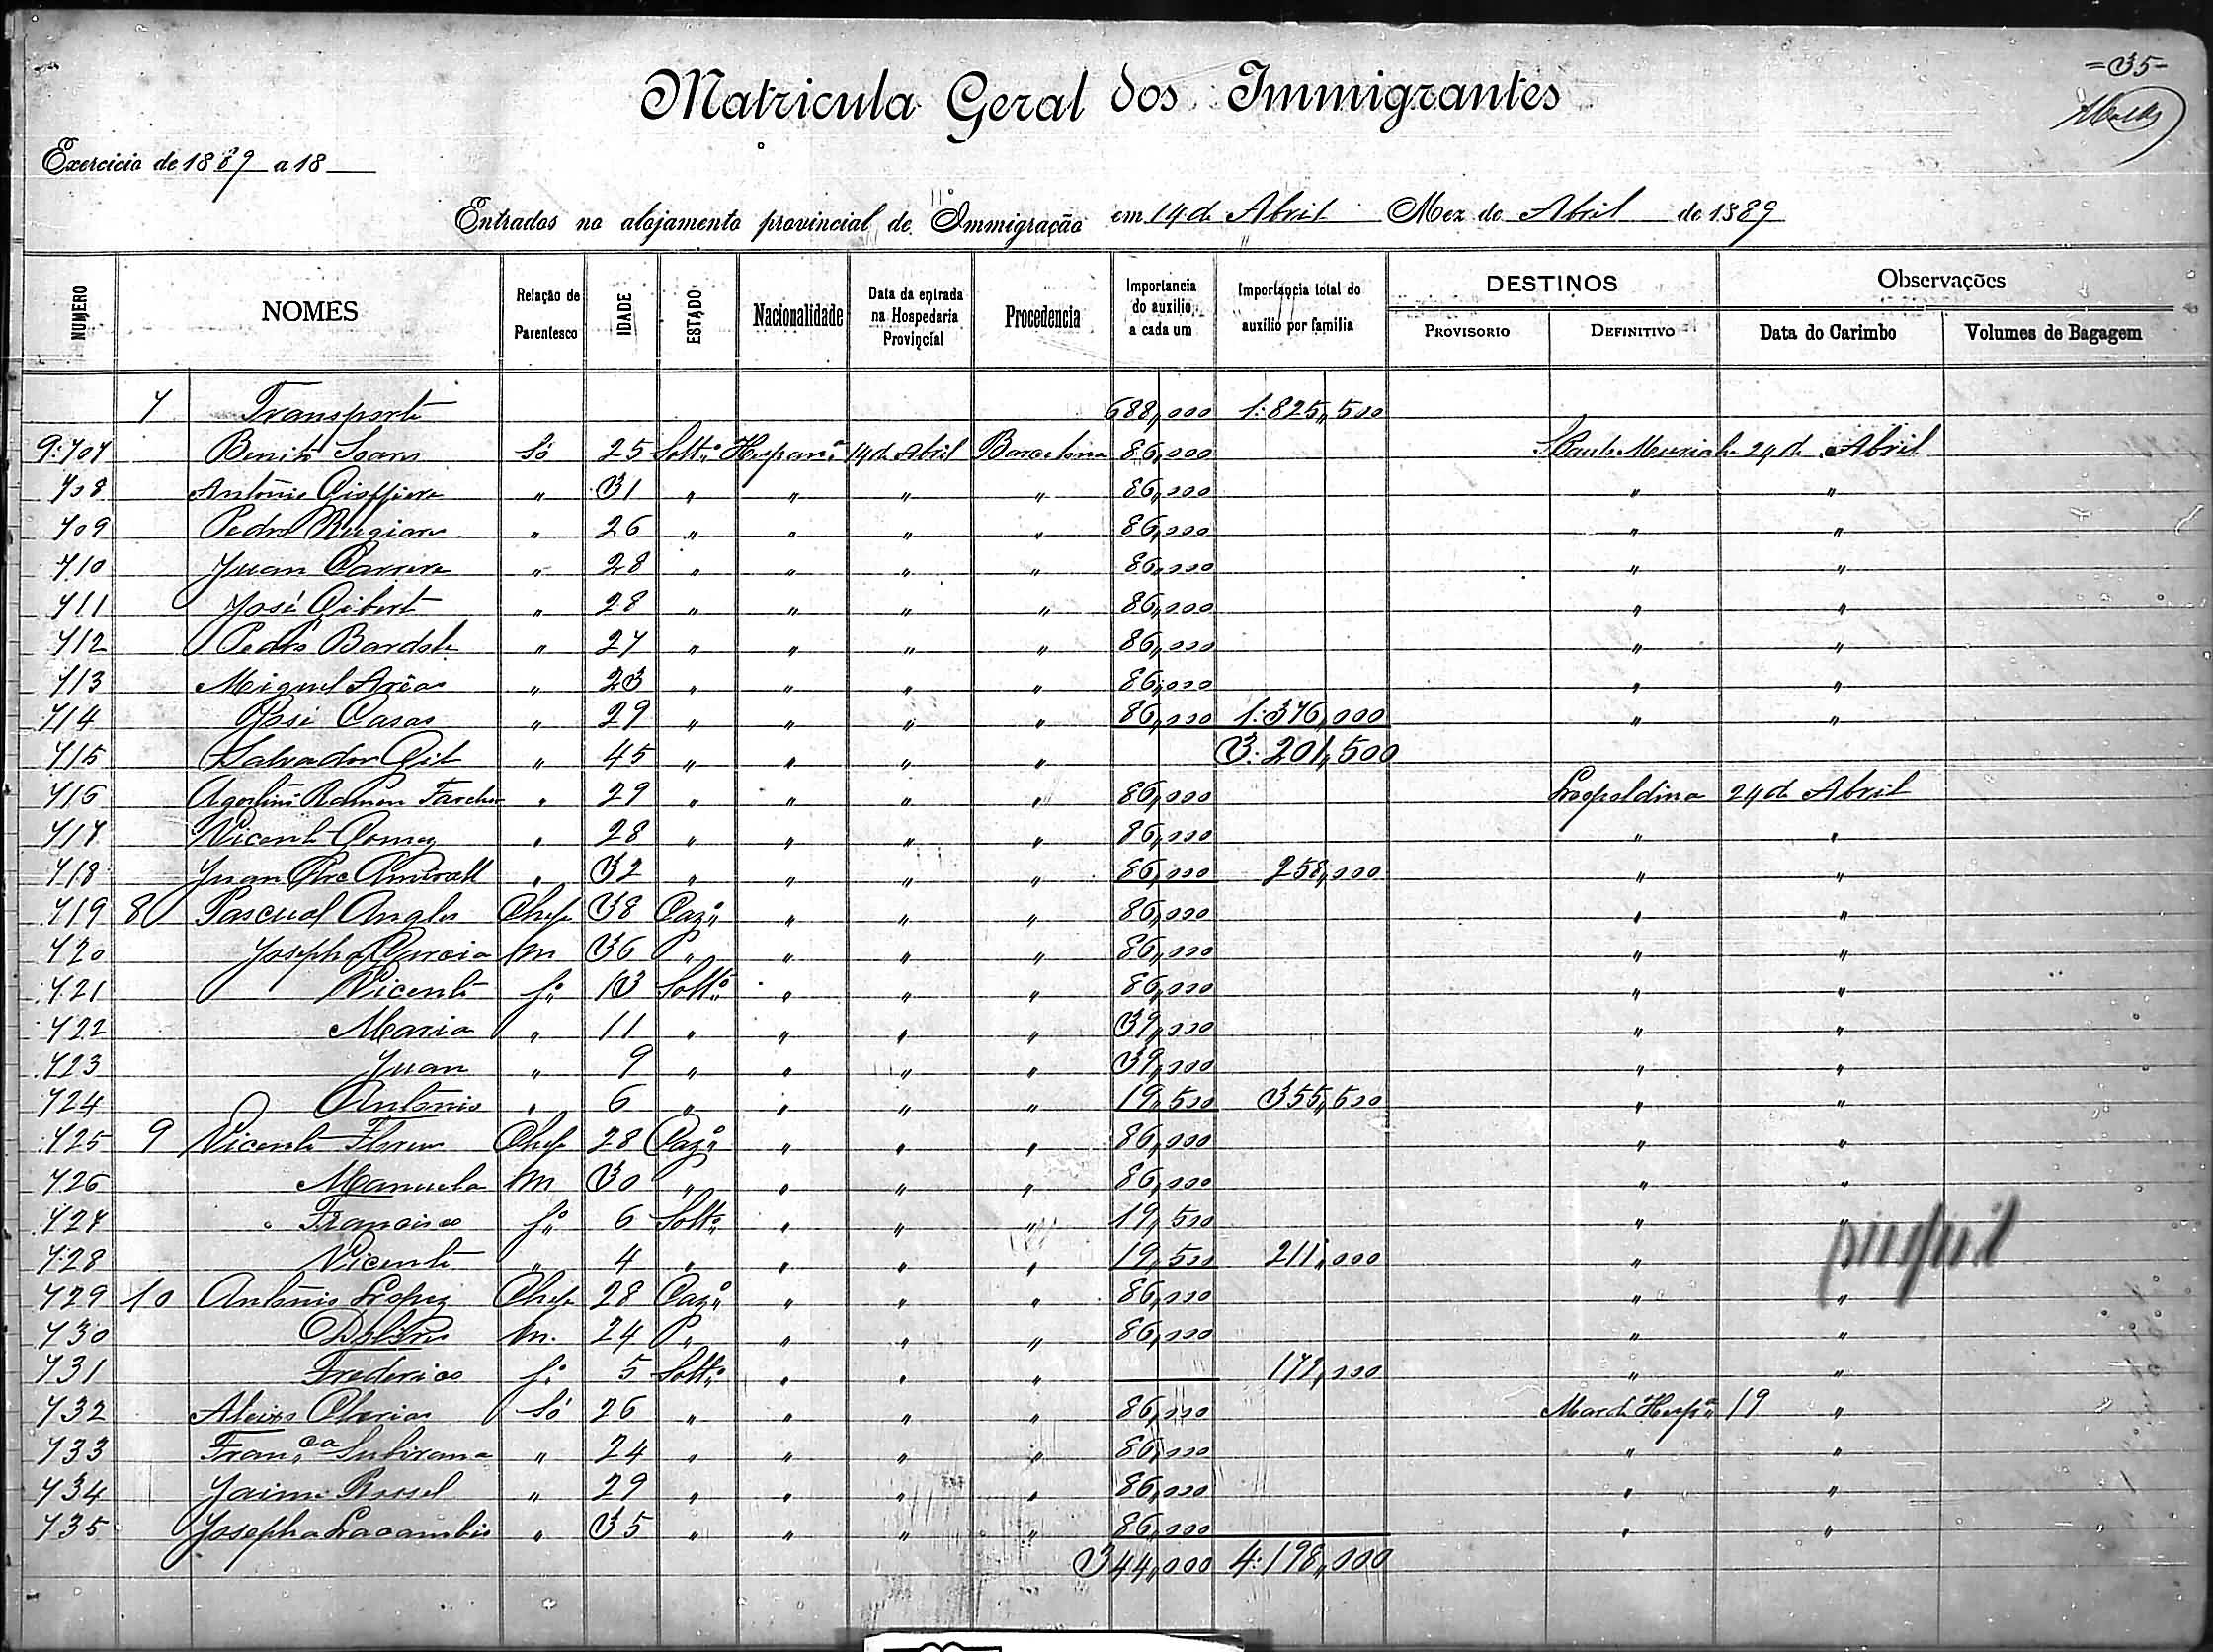 =35=
Matricula Geral dos Immigrantes
Exercicio de 1889 a 18
Entrados no alojamento provincial de Immigração em 14 de Abril Mez de Abril de 1889
NUMERO NOMES Relação de Parentesco IDADE ESTADO Nacionalidade Data da entrada na Hospedaria Provincial Procedencia Importancia do auxilio a cada um Importancia total do auxilio por familia DESTINOS PROVISORIO DEFINITIVO Observações Data do Carimbo Volumes de Bagagem
7 Transporte 688,000 1:825,500
9.707 Benito Soares Só 25 Soltº Hespanª 14 de Abril Barcelona 86,000 24 de Abril
708 Antonio " 31 " " " " 86,000 " "
709 Pedro " 26 " " " " 86,000 " "
710 Juan Carrera " 28 " " " " 86,000 " "
711 José Gibert " 28 " " " " 86,000 " "
712 Pedro " 27 " " " " 86,000 " "
713 Miguel Arias " 23 " " " " 86,000 " "
714 José Casas " 29 " " " " 86,000 1:376,000 " "
715 Salvador Gil " 45 " " " " 3:201,500
716 Ramon " 29 " " " " 86,000 Leopoldina 24 de Abril
717 Vicente Gomez " 28 " " " " 86,000 " "
718 Juan " 32 " " " " 86,000 258,000 " "
719 8 Pascual Angles Chefe 38 Cazº " " " 86,000 " "
720 Josepha Garcia m 36 " " " " 86,000 " "
721 Vicente fº 13 Soltº " " " 86,000 " "
722 Maria " 11 " " " " 39,000 " "
723 Juan " 9 " " " " 39,000 " "
724 Antonio " 6 " " " " 19,500 355,500 " "
725 9 Vicente Chefe 28 Cazº " " " 86,000 " "
726 Manuela m 30 " " " " 86,000 " "
727 Francisco fº 6 Soltº " " " 19,500 " "
728 Vicente " 4 " " " " 19,500 211,000 "
729 10 Antonio Lopez Chefe 28 Cazº " " " 86,000 " "
730 Dolores m. 24 " " " " 86,000 " "
731 Frederico fº 5 Soltº " " " 172,000 " "
732 Só 26 " " " " 86,000 19 "
733 Franca Subirana " 24 " " " " 86,000 " "
734 Jaime " 29 " " " " 86,000 " "
735 Josepha " 35 " " " " 86,000 " "
344,000 4:198,000